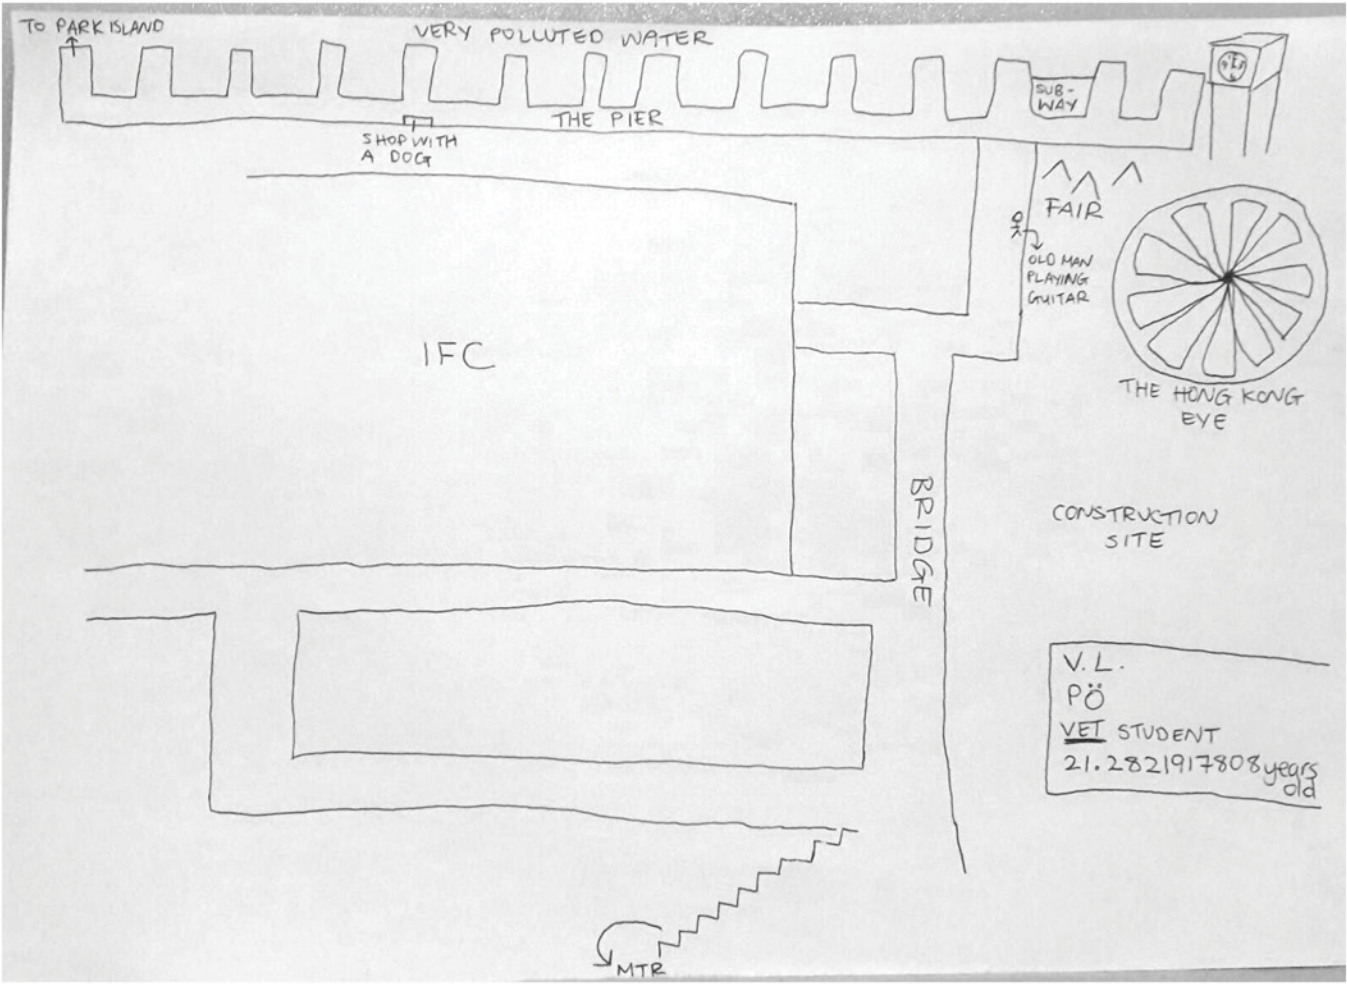 TO PARK ISLAND
VERY POLLUTED WATER
SUB-
WAY
THE PIER
SHOP WITH
A DOG
FAIR
OLD MAN
PLAYING
GUITAR
IFC
THE HONG KONG
EYE
BRIDGE
CONSTRUCTION
SITE
V.L.
PÖ
VET STUDENT
21.2821917808 years
old
MTR